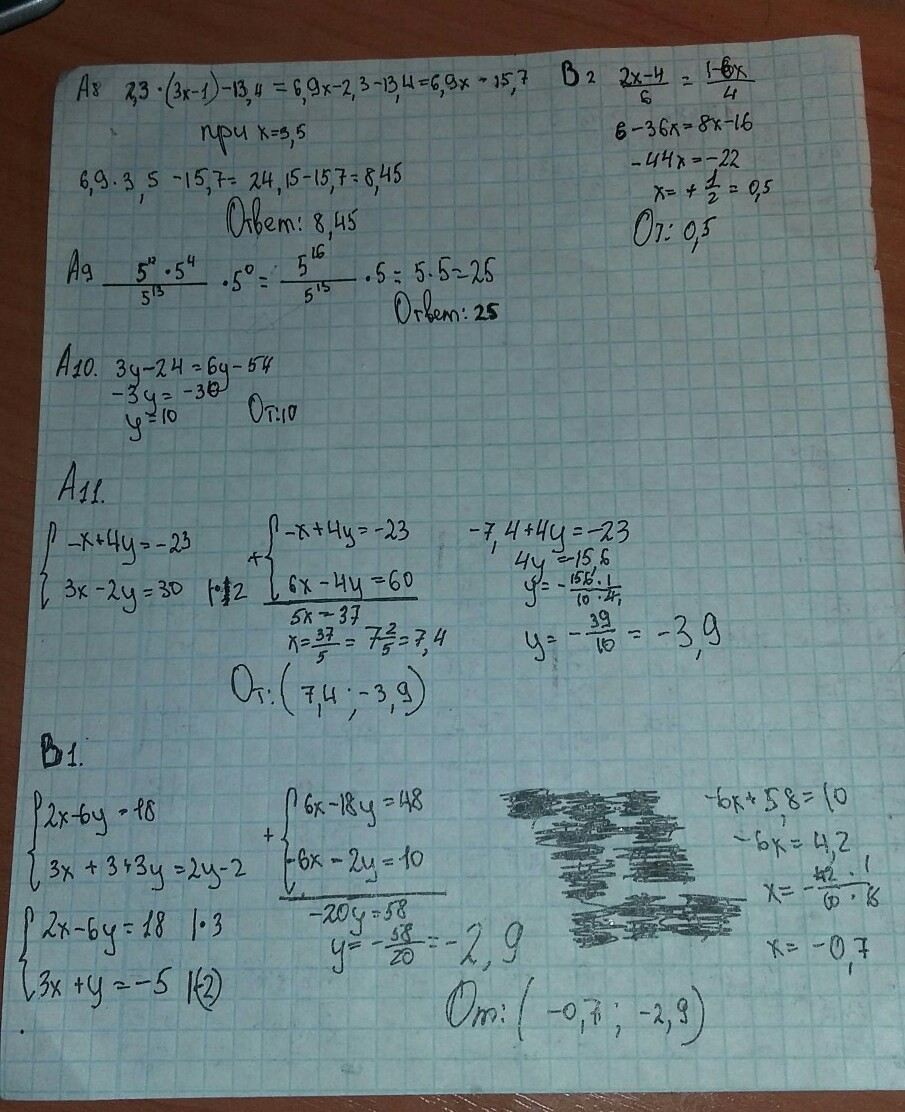 А8 2,3·(3x-1)-13,4 = 6,9x-2,3-13,4=6,9x-15,7
при x=3,5
6,9·3,5 -15,7= 24,15-15,7= 8,45
Ответ: 8,45
А9 5¹² · 5⁴ / 5¹³ · 5⁰ = 5¹⁶ / 5¹⁵ · 5 = 5·5=25
Ответ: 25
А10. 3y-24 =6y-54
-3y= -30
y=10 От:10
B2 2x-4 / 6 = 1-6x / 4
6-36x=8x-16
-44x=-22
x= + 1/2 = 0,5
От: 0,5
А11.
{ -x+4y=-23
3x-2y=30 |·2
+ { -x+4y=-23
6x-4y=60
5x=37
x= 37/5 = 7 2/5 = 7,4
-7,4+4y=-23
4y=-15,6
y=- 156·1 / 10·4
y= - 39/10 = -3,9
От: (7,4 ; -3,9)
B1.
{ 2x-6y=18
3x+3+3y=2y-2
{ 2x-6y=18 |·3
3x+y=-5 |(-2)
+ { 6x-18y=48
-6x-2y=10
-20y=58
y= - 58/20 = -2,9
-6x+5,8=10
-6x=4,2
x= - 42 · 1 / 10 · 6
x= -0,7
От: (-0,7 ; -2,9)